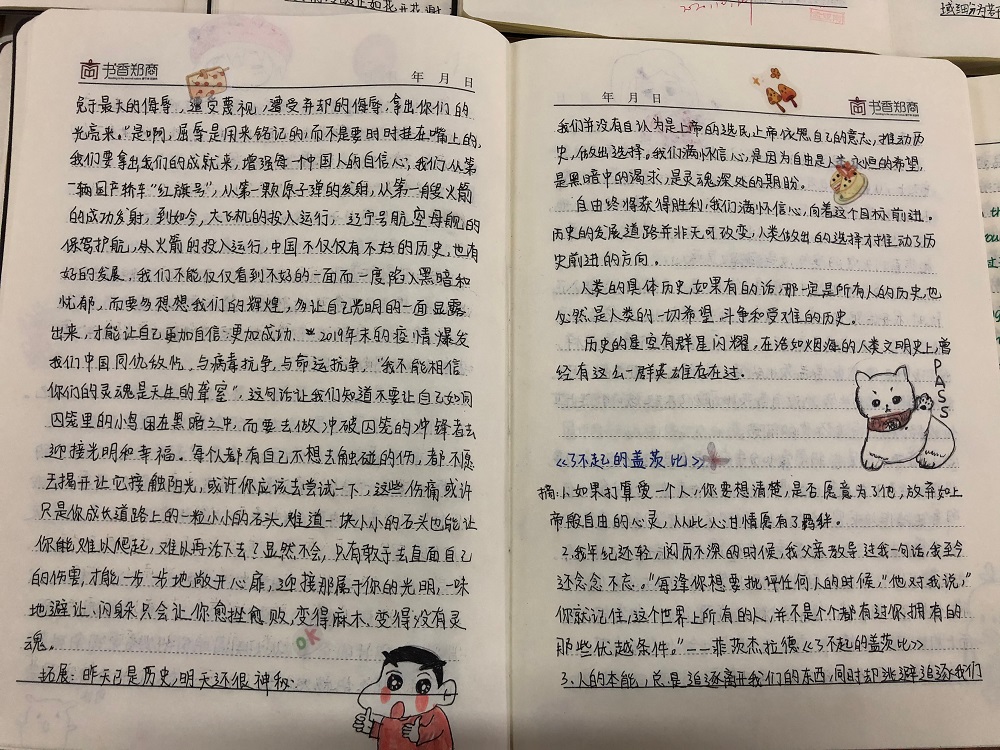 书香郑商
年 月 日
免于最大的侮辱，遭受蔑视，遭受弃却的侮辱，拿出你们的
光亮来。”是啊，屈辱是用来铭记的，而不是要时时挂在嘴上的，
我们要拿出我们的成就来，增强每一中国人的自信心，我们从第
一辆国产轿车“红旗号”，从第一颗原子弹的发射，从第一艘火箭
的成功发射，到如今，大飞机的投入运行，辽宁号航空母舰的
保驾护航，从火箭的投入运行，中国不仅仅有不好的历史，也有
好的发展，我们不能仅仅看到不好的一面而一度陷入黑暗和
忧郁，而要多想想我们的辉煌，多让自己光明的一面显露
出来，才能让自己更加自信，更加成功。2019年末的疫情爆发
我们中国同仇敌忾，与病毒抗争，与命运抗争，“我不能相信
你们的灵魂是天生的聋室”，这句话让我们知道不要让自己如同
囚笼里的小鸟困在黑暗之中，而要去做冲破囚笼的冲锋者去
迎接光明和幸福。每个都有自己不想去触碰的伤，都不愿
去揭开让它接触阳光，或许你应该去尝试一下，这些伤痛或许
只是你成长道路上的一粒小小的石头，难道一块小小的石头也能让
你能难以爬起，难以再活下去了显然不会，只有敢于去直面自己
的伤害，才能一步步地敞开心扉，迎接那属于你的光明，一味
地避让、闪躲只会让你愈挫愈败，变得麻木，变得没有灵
魂。
ok
拓展：昨天已是历史，明天还很神秘
年 月 日
书香郑商
我们并没有自认为是上帝的选民，上帝凭思自己的意志，推动历
史，做出选择。我们满怀信心，是因为自由是人类永恒的希望，
是黑暗中的渴求，是灵魂深处的期盼。
自由终将获得胜利，我们满怀信心，向着这个目标前进。
历史的发展道路并非无可改变，人类做出的选择才推动了历
史前进的方向。
人类的具体历史，如果有的话，那一定是所有人的历史，也
必然是人类的一切希望、斗争和受难的历史。
历史的星空有群星闪耀，在浩如烟海的人类文明史上，曾
经有这么一群英雄存在过.
PASS
《了不起的盖茨比》
摘：1.如果打算爱一个人，你要想清楚，是否愿意为了他，放弃如上
帝般自由的心灵，从此心甘情愿有了羁绊。
2.我年纪还轻，阅历不深的时候，我父亲教导过我一句话，我至今
还念念不忘。“每逢你想要批评任何人的时候，”他对我说，“
你就记住，这个世界上所有的人，并不是个个都有过你拥有的
那些优越条件。”——菲茨杰拉德《了不起的盖茨比》
3.人的本能，总是追逐离开我们的东西，同时却逃避追逐我们